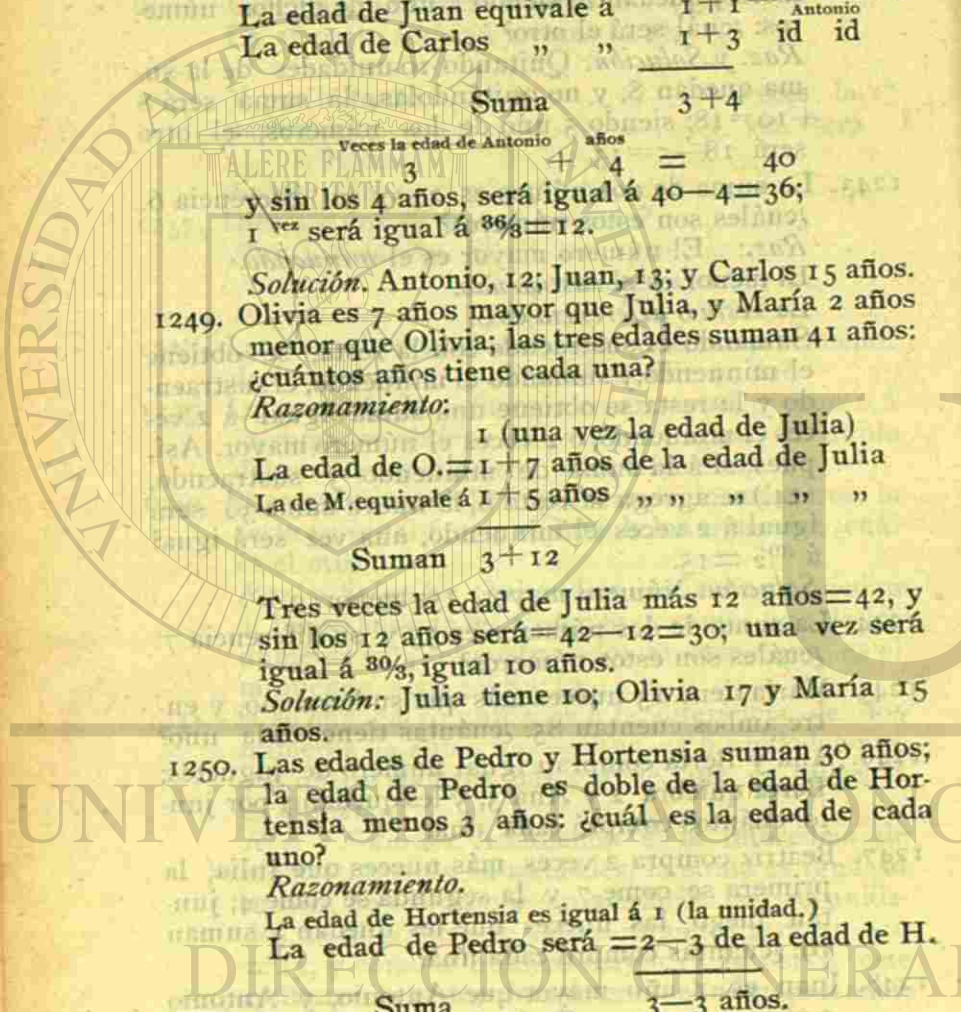 La edad de Juan equivale á 1+1 Antonio
La edad de Carlos „ „ 1+3 id id
Suma 3+4
Veces la edad de Antonio años
3 + 4 = 40
y sin los 4 años, será igual á 40—4=36;
1 vez será igual á 36/3=12.
Solución. Antonio, 12; Juan, 13; y Carlos 15 años.
1249. Olivia es 7 años mayor que Julia, y María 2 años
menor que Olivia; las tres edades suman 41 años:
¿cuántos años tiene cada una?
Razonamiento:
1 (una vez la edad de Julia)
La edad de O.=1+7 años de la edad de Julia
La de M. equivale á 1+5 años „ „ „ „ „
Suman 3+12
Tres veces la edad de Julia más 12 años=42, y
sin los 12 años será=42—12=30; una vez será
igual á 30/3, igual 10 años.
Solución: Julia tiene 10; Olivia 17 y María 15
años.
1250. Las edades de Pedro y Hortensia suman 30 años;
la edad de Pedro es doble de la edad de Hor-
tensia menos 3 años: ¿cuál es la edad de cada
uno?
Razonamiento.
La edad de Hortensia es igual á 1 (la unidad.)
La edad de Pedro será =2—3 de la edad de H.
Suma 3—3 años.
ALERE FLAMMAM
VERITATIS
UNIVERSIDAD AUTÓNO
DIRECCIÓN GENERAL